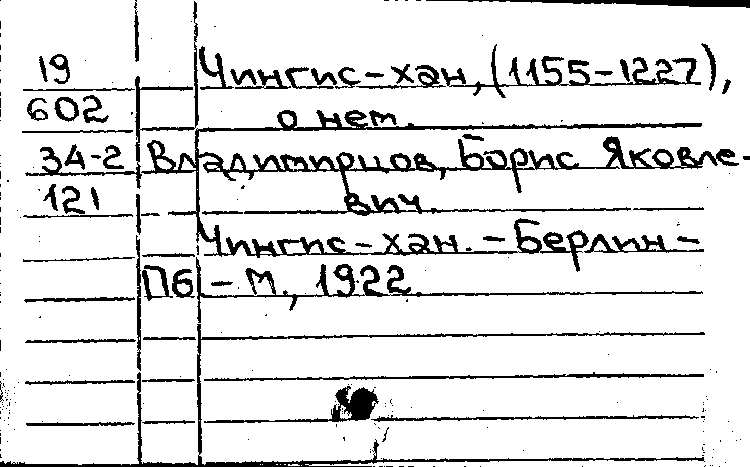 19 Чингис-хан, (1155-1227),
602 о нем.
34-2 Владимирцов, Борис Яковле-
121 вич.
Чингис-хан. - Берлин -
Пб - М., 1922.